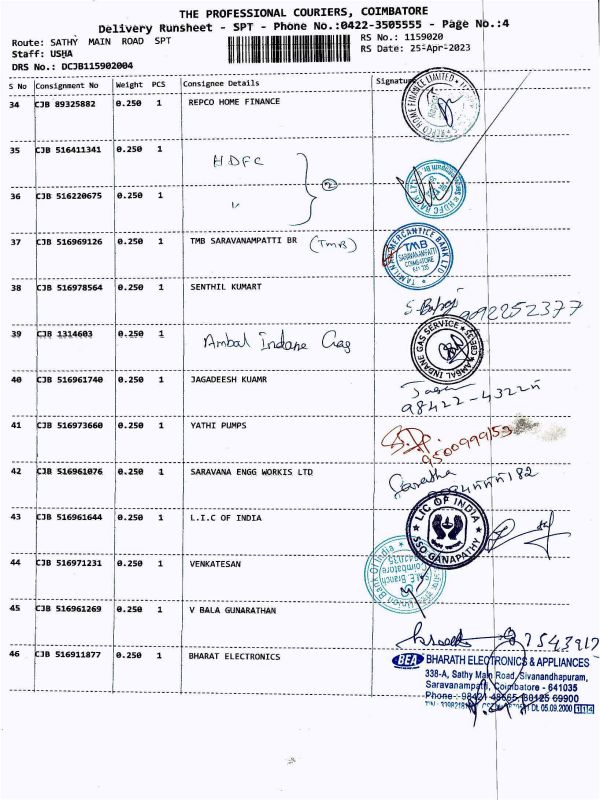 THE PROFESSIONAL COURIERS, COIMBATORE
Delivery Runsheet - SPT - Phone No.:0422-3505555 - Page No.:4
Route: SATHY MAIN ROAD SPT
RS No.: 1159020
Staff: USHA
RS Date: 25-Apr-2023
DRS No.: DCJB115902004
S No Consignment No Weight PCS Consignee Details Signature
34 CJB 89325882 0.250 1 REPCO HOME FINANCE
35 CJB 516411341 0.250 1 HDFC
36 CJB 516220675 0.250 1 " 2
37 CJB 516969126 0.250 1 TMB SARAVANAMPATTI BR (TMB)
TAMILNAD MERCANTILE BANK LTD
TMB
SARAVANAMPATTI
COIMBATORE
641 035
38 CJB 516978564 0.250 1 SENTHIL KUMART
9092252377
39 CJB 1314603 0.250 1 Ambal Indane Gas
AMBAL INDANE GAS SERVICE
40 CJB 516961740 0.250 1 JAGADEESH KUAMR
41 CJB 516973660 0.250 1 YATHI PUMPS
9500999153
42 CJB 516961076 0.250 1 SARAVANA ENGG WORKIS LTD
43 CJB 516961644 0.250 1 L.I.C OF INDIA
LIC OF INDIA
SSO GANAPATHY
44 CJB 516971231 0.250 1 VENKATESAN
Union Bank Of India
Coimbatore
45 CJB 516961269 0.250 1 V BALA GUNARATHAN
46 CJB 516911877 0.250 1 BHARAT ELECTRONICS
BEA BHARATH ELECTRONICS & APPLIANCES
338-A, Sathy Main Road, Sivanandhapuram,
Saravanampatti, Coimbatore - 641035
Dt. 05.09.2000